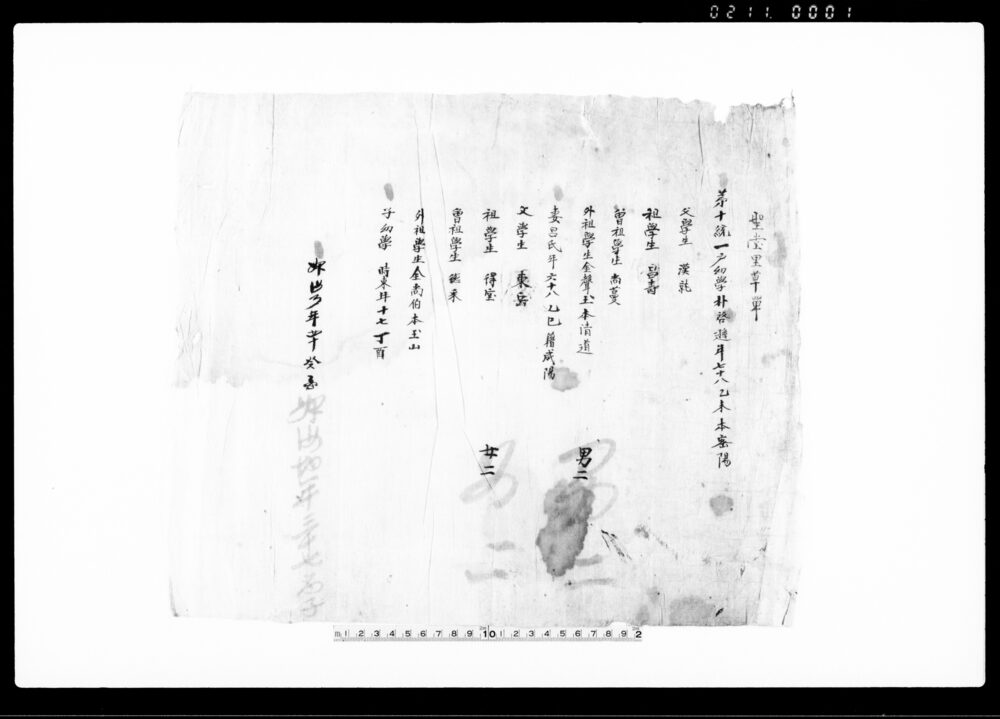 0211 0001
聖堂里草單
第十統一戶幼學朴啓遊年七十八乙未本密陽
父學生 漢乾
祖學生 昌壽
曾祖學生 尚蔓
外祖學生金聲玉本清道
妻呂氏年六十八乙巳籍咸陽
父學生 東岳
祖學生 得宝
曾祖學生 采
外祖學生金尚伯本玉山
子幼學 時東年十七丁酉
男二
女二
年 癸
男二
二
年三十七
m 1 2 3 4 5 6 7 8 9 10 1 2 3 4 5 6 7 8 9 2